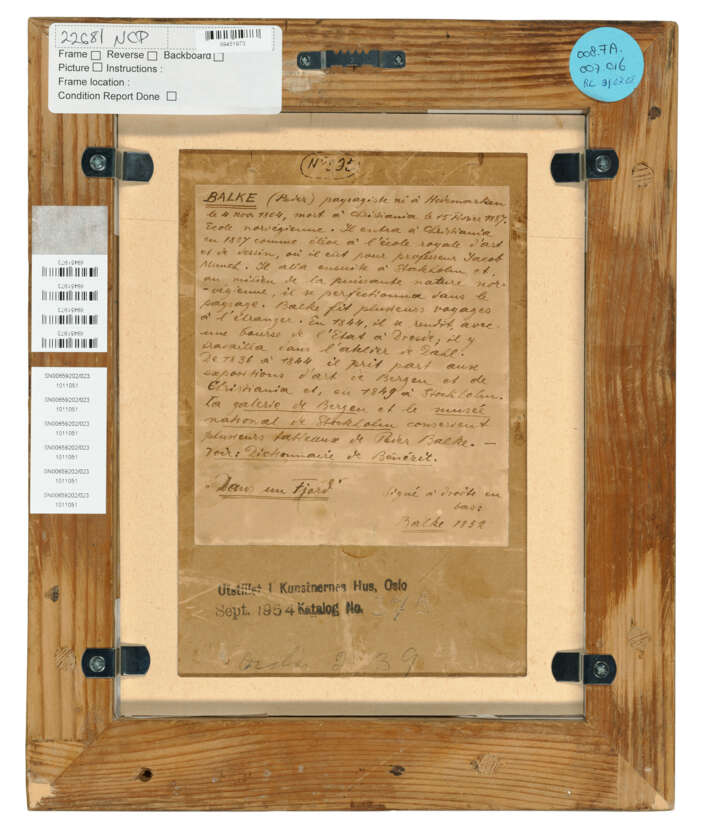 22681 NCP
69451973
Frame Reverse Backboard
Picture Instructions :
Frame location :
Condition Report Done
008.7A.
007.016
69451973
69451973
69451973
69451973
SN00656202/023
1011051
SN00656202/023
1011051
SN00656202/023
1011051
SN00656202/023
1011051
SN00656202/023
1011051
SN00656202/023
1011051
BALKE (Peder) paysagiste né à Hedemarken
le 4 nov 1804, mort à Christiania le 15 Février 1887.
Ecole norvégienne. Il entra à Christiania
en 1827 comme élève à l'école royale d'art
et de dessin, où il eut pour professeur Jacob
Munch. Il alla ensuite à Stockholm et,
au milieu de la puissante nature nor-
-végienne, il se perfectionna dans le
paysage. Balke fit plusieurs voyages
à l'étranger. En 1844, il se rendit, avec
une bourse de l'Etat à Dresde, il y
travailla dans l'atelier de Dahl.
De 1836 à 1844 il prit part aux
expositions d'art de Bergen et de
Christiania et, en 1849 à Stockholm.
La galerie de Bergen et le musée
national de Stockholm conservent
plusieurs tableaux de Peder Balke. —
Voir : Dictionnaire de Bénézit.
"Dans un Fjord"
signé à droite en
bas:
Balke 1852
Utstillet i Kunstnernes Hus, Oslo
Sept. 1954 Katalog No.